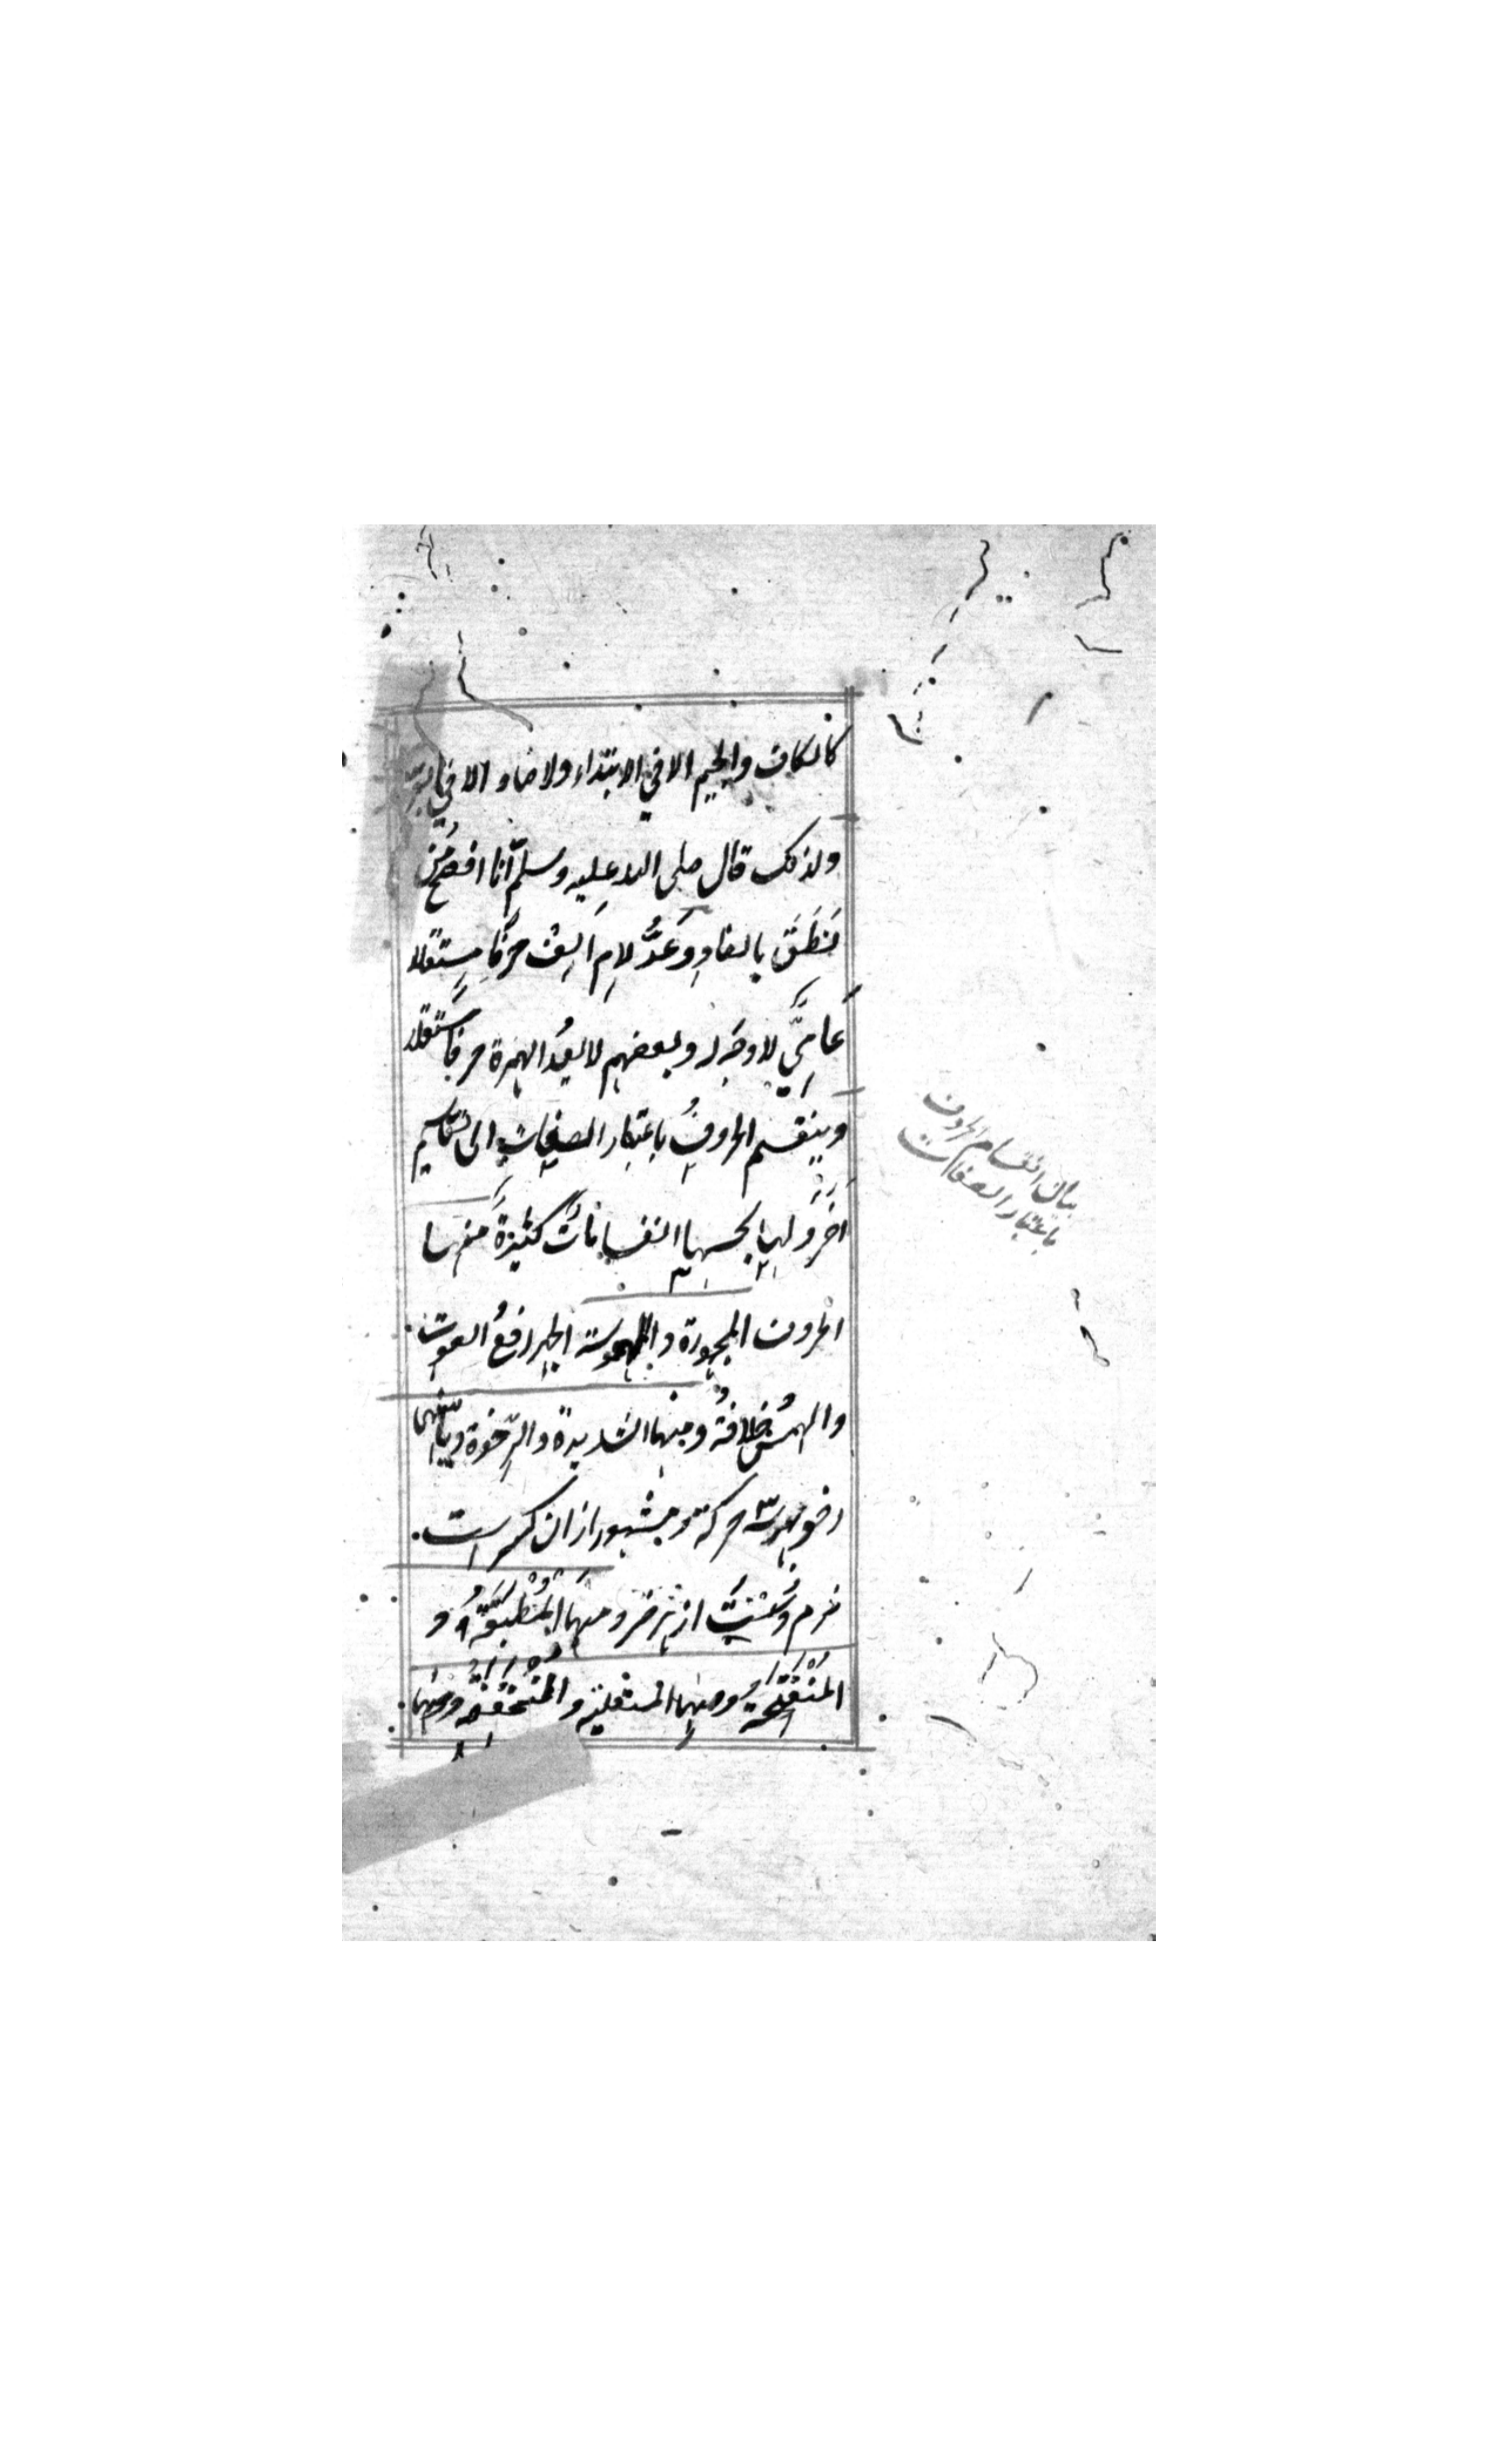 كالكاف والجيم الا في الابتداء ولا ضاد الا في العربية
ولذلك قال صلى الله عليه وسلم أنا افصح من
نَطَقَ بالضادِ وعَدُّ لام اَلِف حرفًا مستقلا
عَامِيٌّ لا وجه له وبعضهم لا يعد الهمزة حرفا مستقلا
وينقسم الحروفُ باعتبار الصفاتِ الى تقاسيم
أُخَرَ ولها بحسبها انقسامات كثيرةٌ منها
الحروف المجهورة والمهموسة الجهر رفعُ الصوت
والهمسُ خلافهُ ومنها الشديدة والرِّخوة وما بينهما
رخو حركة ومشهور ازان كسر است
نرم ومنها المُطْبَقَةُ و
المُنْفَتِحَةُ ومنها المستعلية والمُنْخَفِضَةُ ومنها
بيان انقسام الحروف
باعتبار الصفات